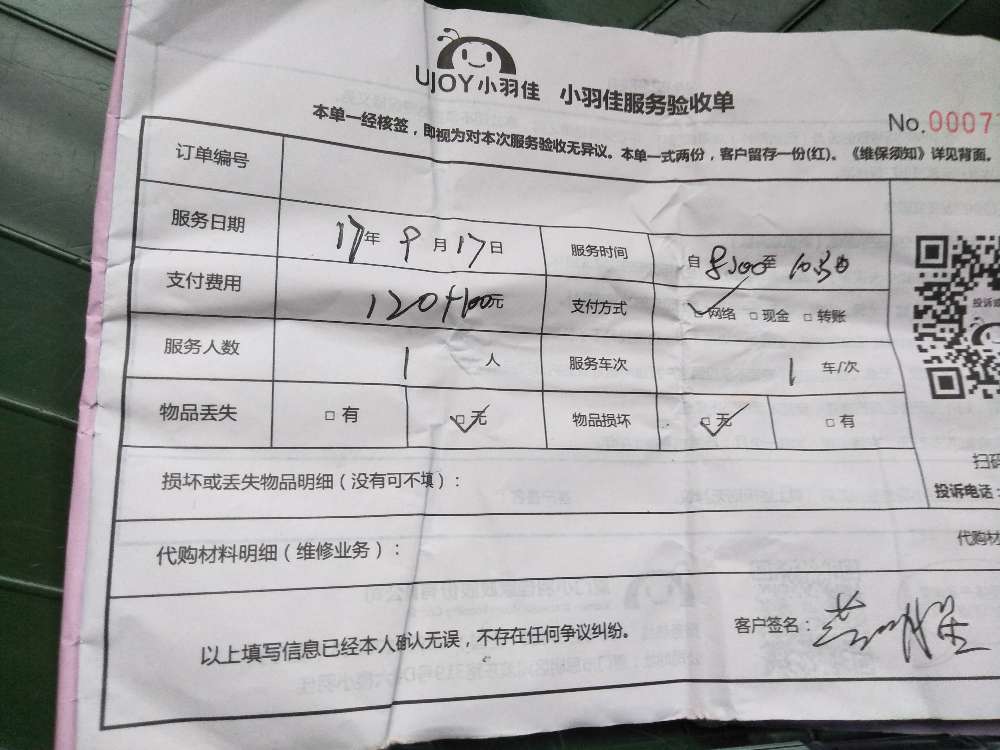 UJOY小羽佳 小羽佳服务验收单
No.0007
本单一经核签，即视为对本次服务验收无异议。本单一式两份，客户留存一份(红)。《维保须知》详见背面。
订单编号
服务日期 17年9月17日 服务时间 自8:00至10:30
支付费用 120+100元 支付方式 网络 □现金 □转账
服务人数 1人 服务车次 1车/次
物品丢失 □有 □无 物品损坏 □无 □有
损坏或丢失物品明细（没有可不填）：
扫码
投诉电话：
代购材料明细（维修业务）：
代购材
以上填写信息已经本人确认无误，不存在任何争议纠纷。
客户签名：